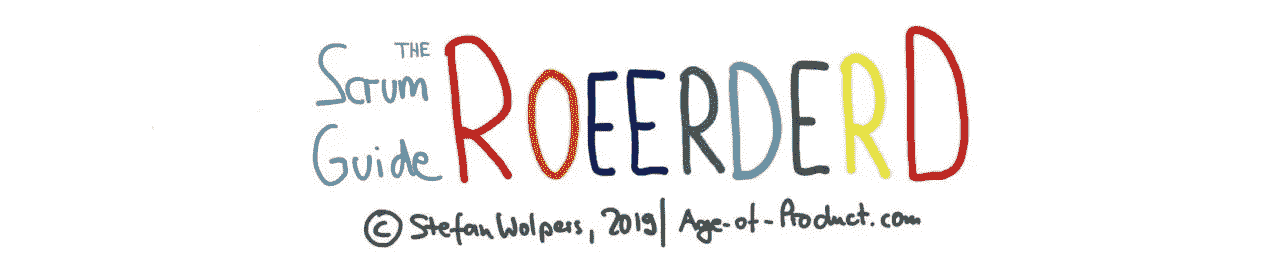 THE
Scrum
Guide
ROEERDERD
© Stefan Wolpers, 2019 | Age-of-Product.com